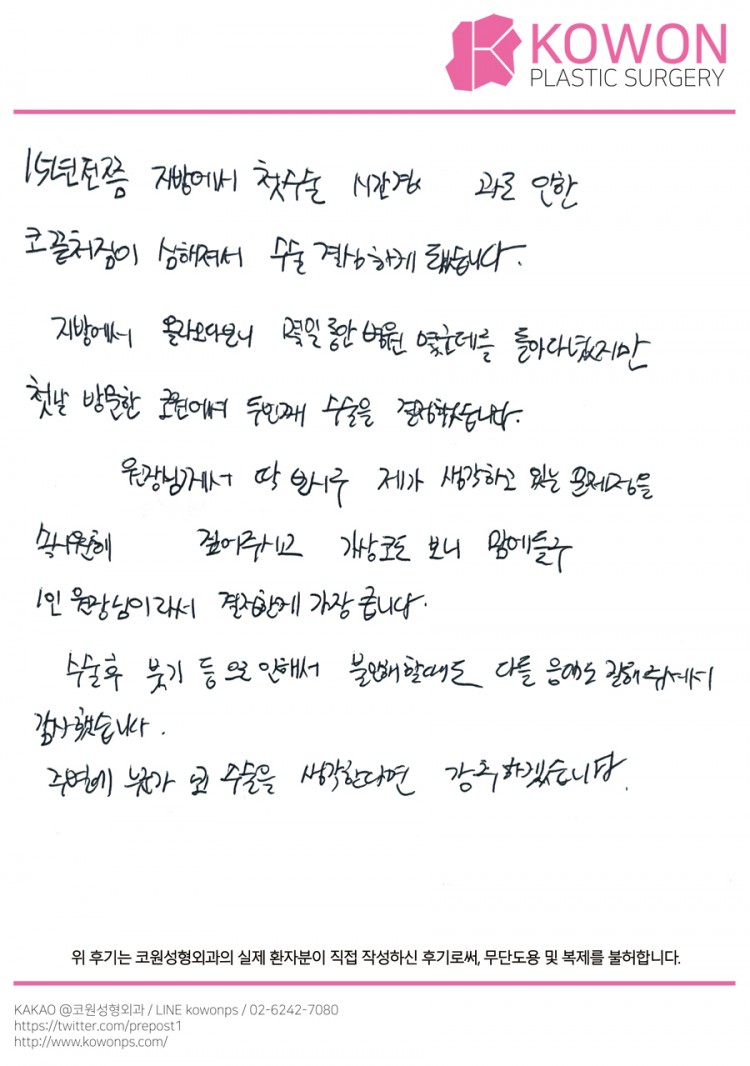 KOWON
PLASTIC SURGERY
15년전쯤 지방에서 첫수술 시간경 과로 인한
코끝처짐이 심해져서 수술 결심하게 됐습니다.
지방에서 올라오다보니 몇일 동안 병원 몇군데를 돌아다녔지만
첫날 방문한 코원에서 두번째 수술을 결정했습니다.
원장님께서 딱 제가 생각하고 있는 문제점을
짚어주시고 가상코도 보니 맘에들구
1인 원장님이라서 결정한게 가장 큽니다.
수술후 붓기 등으로 인해서 불안해할때도 다들 응대도 잘해주셔서
감사했습니다.
주변에 누가 코 수술을 생각한다면 강추하겠습니다.
위 후기는 코원성형외과의 실제 환자분이 직접 작성하신 후기로써, 무단도용 및 복제를 불허합니다.
KAKAO @코원성형외과 / LINE kowonps / 02-6242-7080
https://twitter.com/prepost1
http://www.kowonps.com/